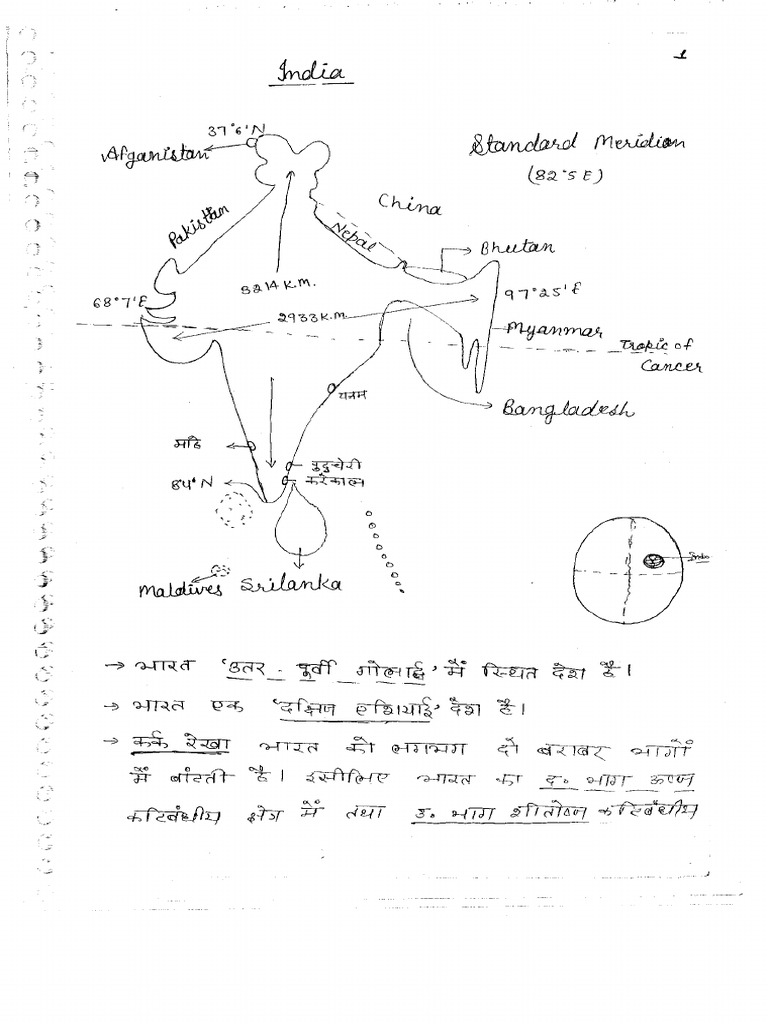 1
India
37°6'N
Afganistan
Standard Meridian
(82°5 E)
China
Pakisttan
Nepal
Bhutan
3214 K.m.
68°7'E
97°25'E
2933 K.m.
Myanmar
Tropic of
Cancer
यनम
Bangladesh
माहे
पुदुचेरी
करैकाल
84°N
India
Maldives
Srilanka
→ भारत 'उतर - पूर्वी गोलार्द्ध' में स्थित देश है।
→ भारत एक 'दक्षिण एशियाई' देश है।
→ कर्क रेखा भारत को लगभग दो बराबर भागों
में बांटती है। इसीलिए भारत का द॰ भाग ऊष्ण
कटिबंधीय क्षेत्र में तथा उ॰ भाग शीतोष्ण कटिबंधीय